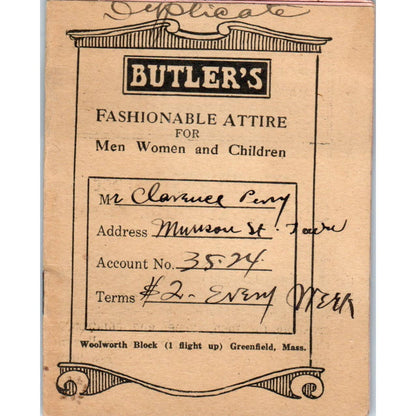 Duplicate
BUTLER'S
FASHIONABLE ATTIRE
FOR
Men Women and Children
Mr Clarence Perry
Address Munson St. Town
Account No. 35-24
Terms $2 - Every Week
Woolworth Block (1 flight up) Greenfield, Mass.